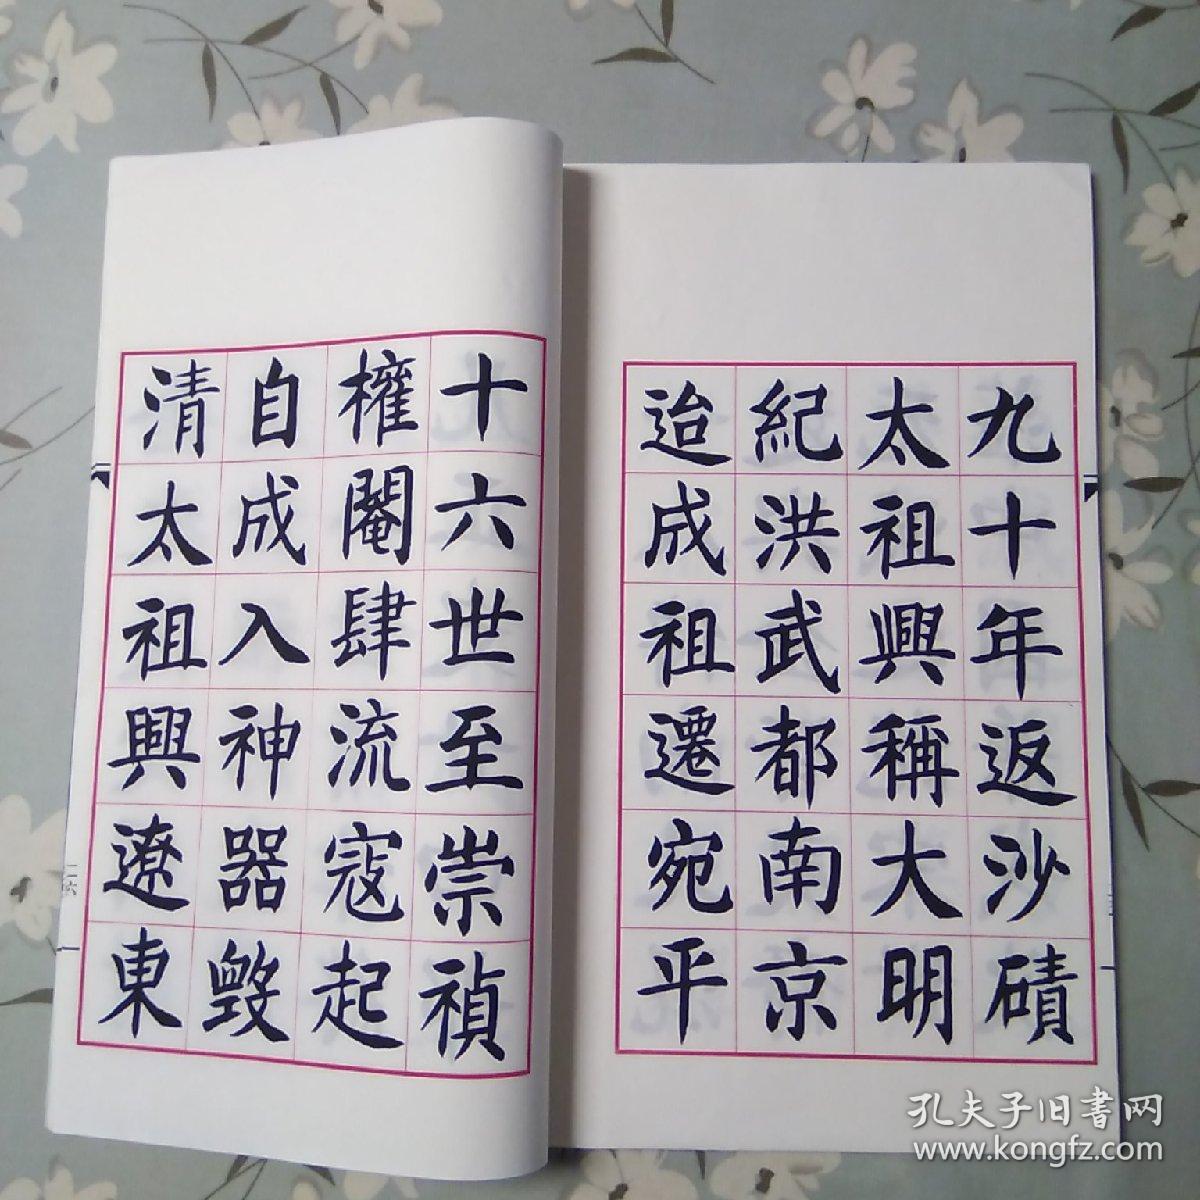 九十年返沙磧
太祖興稱大明
紀洪武都南京
迨成祖遷宛平
十六世至崇禎
權閹肆流寇起
自成入神器毀
清太祖興遼東
二六
孔夫子旧書网
www.kongfz.com